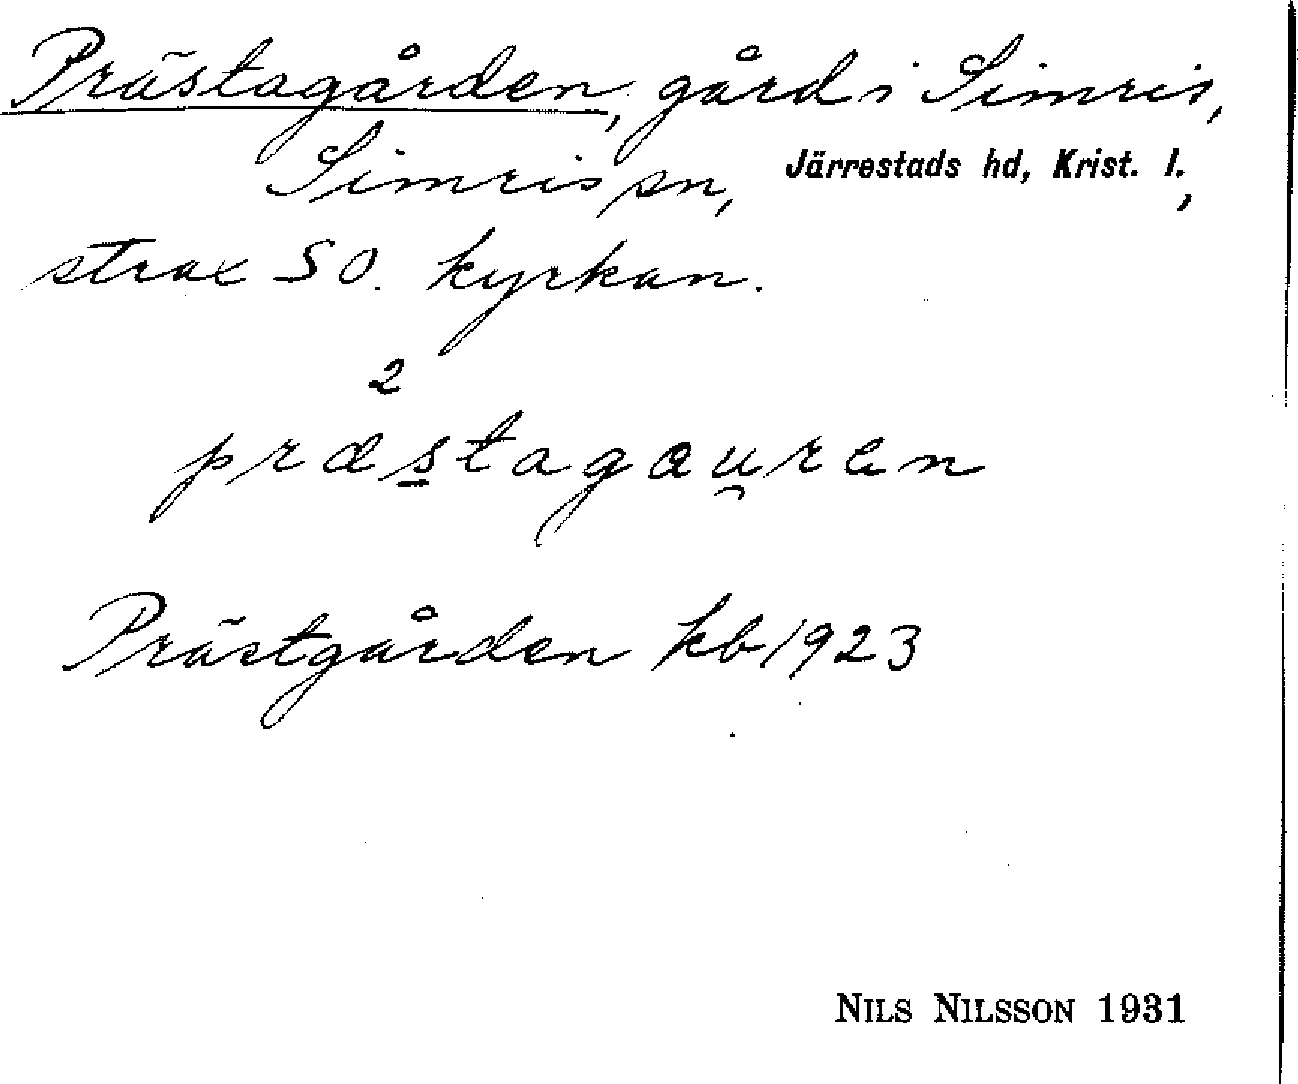 Prästagården, gård i Simris,
Simris sn, Järrestads hd, Krist. l.,
strax SO. kyrkan.
2
præstagauren
Prästgården kb 1923
NILS NILSSON 1931